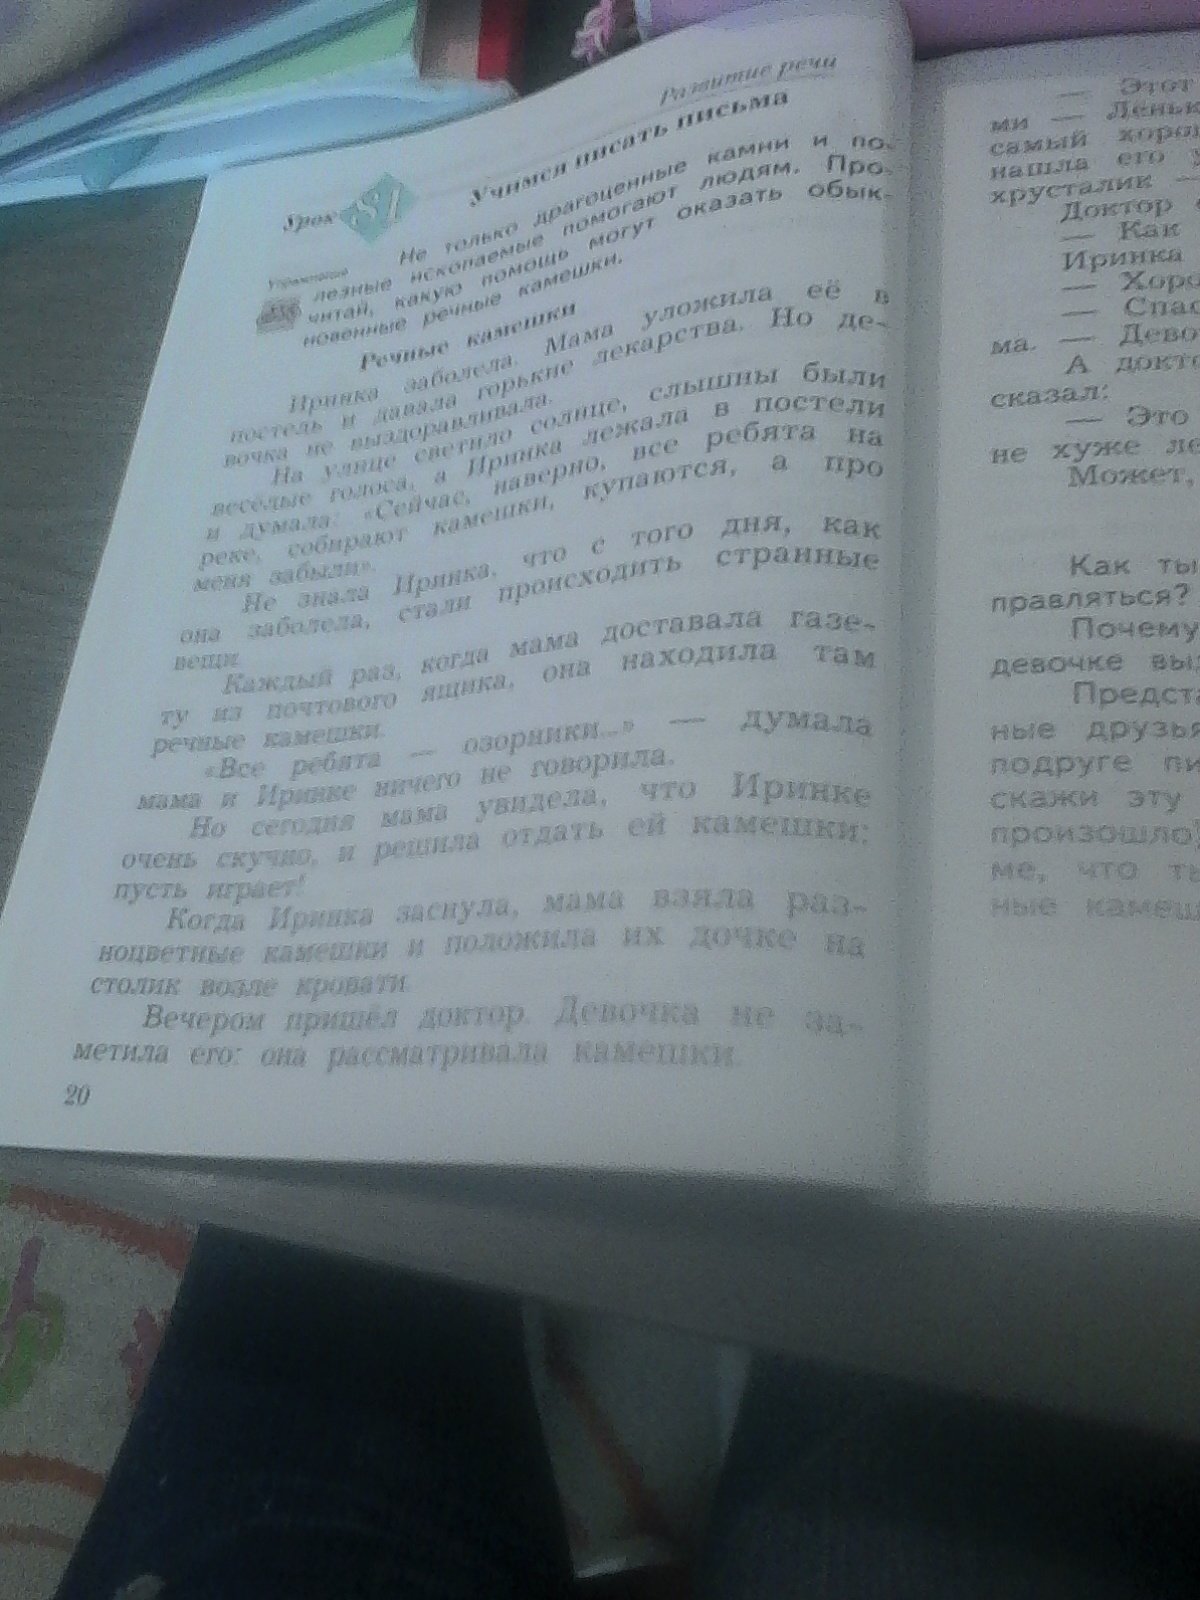 Развитие речи
Урок 81
Учимся писать письма
Упражнение
Не только драгоценные камни и по-
лезные ископаемые помогают людям. Про-
читай, какую помощь могут оказать обык-
новенные речные камешки.
Речные камешки
Иринка заболела. Мама уложила её в
постель и давала горькие лекарства. Но де-
вочка не выздоравливала.
На улице светило солнце, слышны были
весёлые голоса, а Иринка лежала в постели
и думала: «Сейчас, наверно, все ребята на
реке, собирают камешки, купаются, а про
меня забыли».
Не знала Иринка, что с того дня, как
она заболела, стали происходить странные
вещи.
Каждый раз, когда мама доставала газе-
ту из почтового ящика, она находила там
речные камешки.
«Все ребята — озорники...» — думала
мама и Иринке ничего не говорила.
Но сегодня мама увидела, что Иринке
очень скучно, и решила отдать ей камешки:
пусть играет!
Когда Иринка заснула, мама взяла раз-
ноцветные камешки и положила их дочке на
столик возле кровати.
Вечером пришёл доктор. Девочка не за-
метила его: она рассматривала камешки.
20
— Этот
ми — Леньк
самый хоро
нашла его
хрусталик —
Доктор
— Как
Иринка
— Хоро
— Спас
ма. — Дево
А докто
сказал:
— Это
не хуже ле
Может,
Как ты
правляться?
Почему
девочке выз
Предста
ные друзья
подруге пи
скажи эту
произошло
ме, что ты
ные камеш